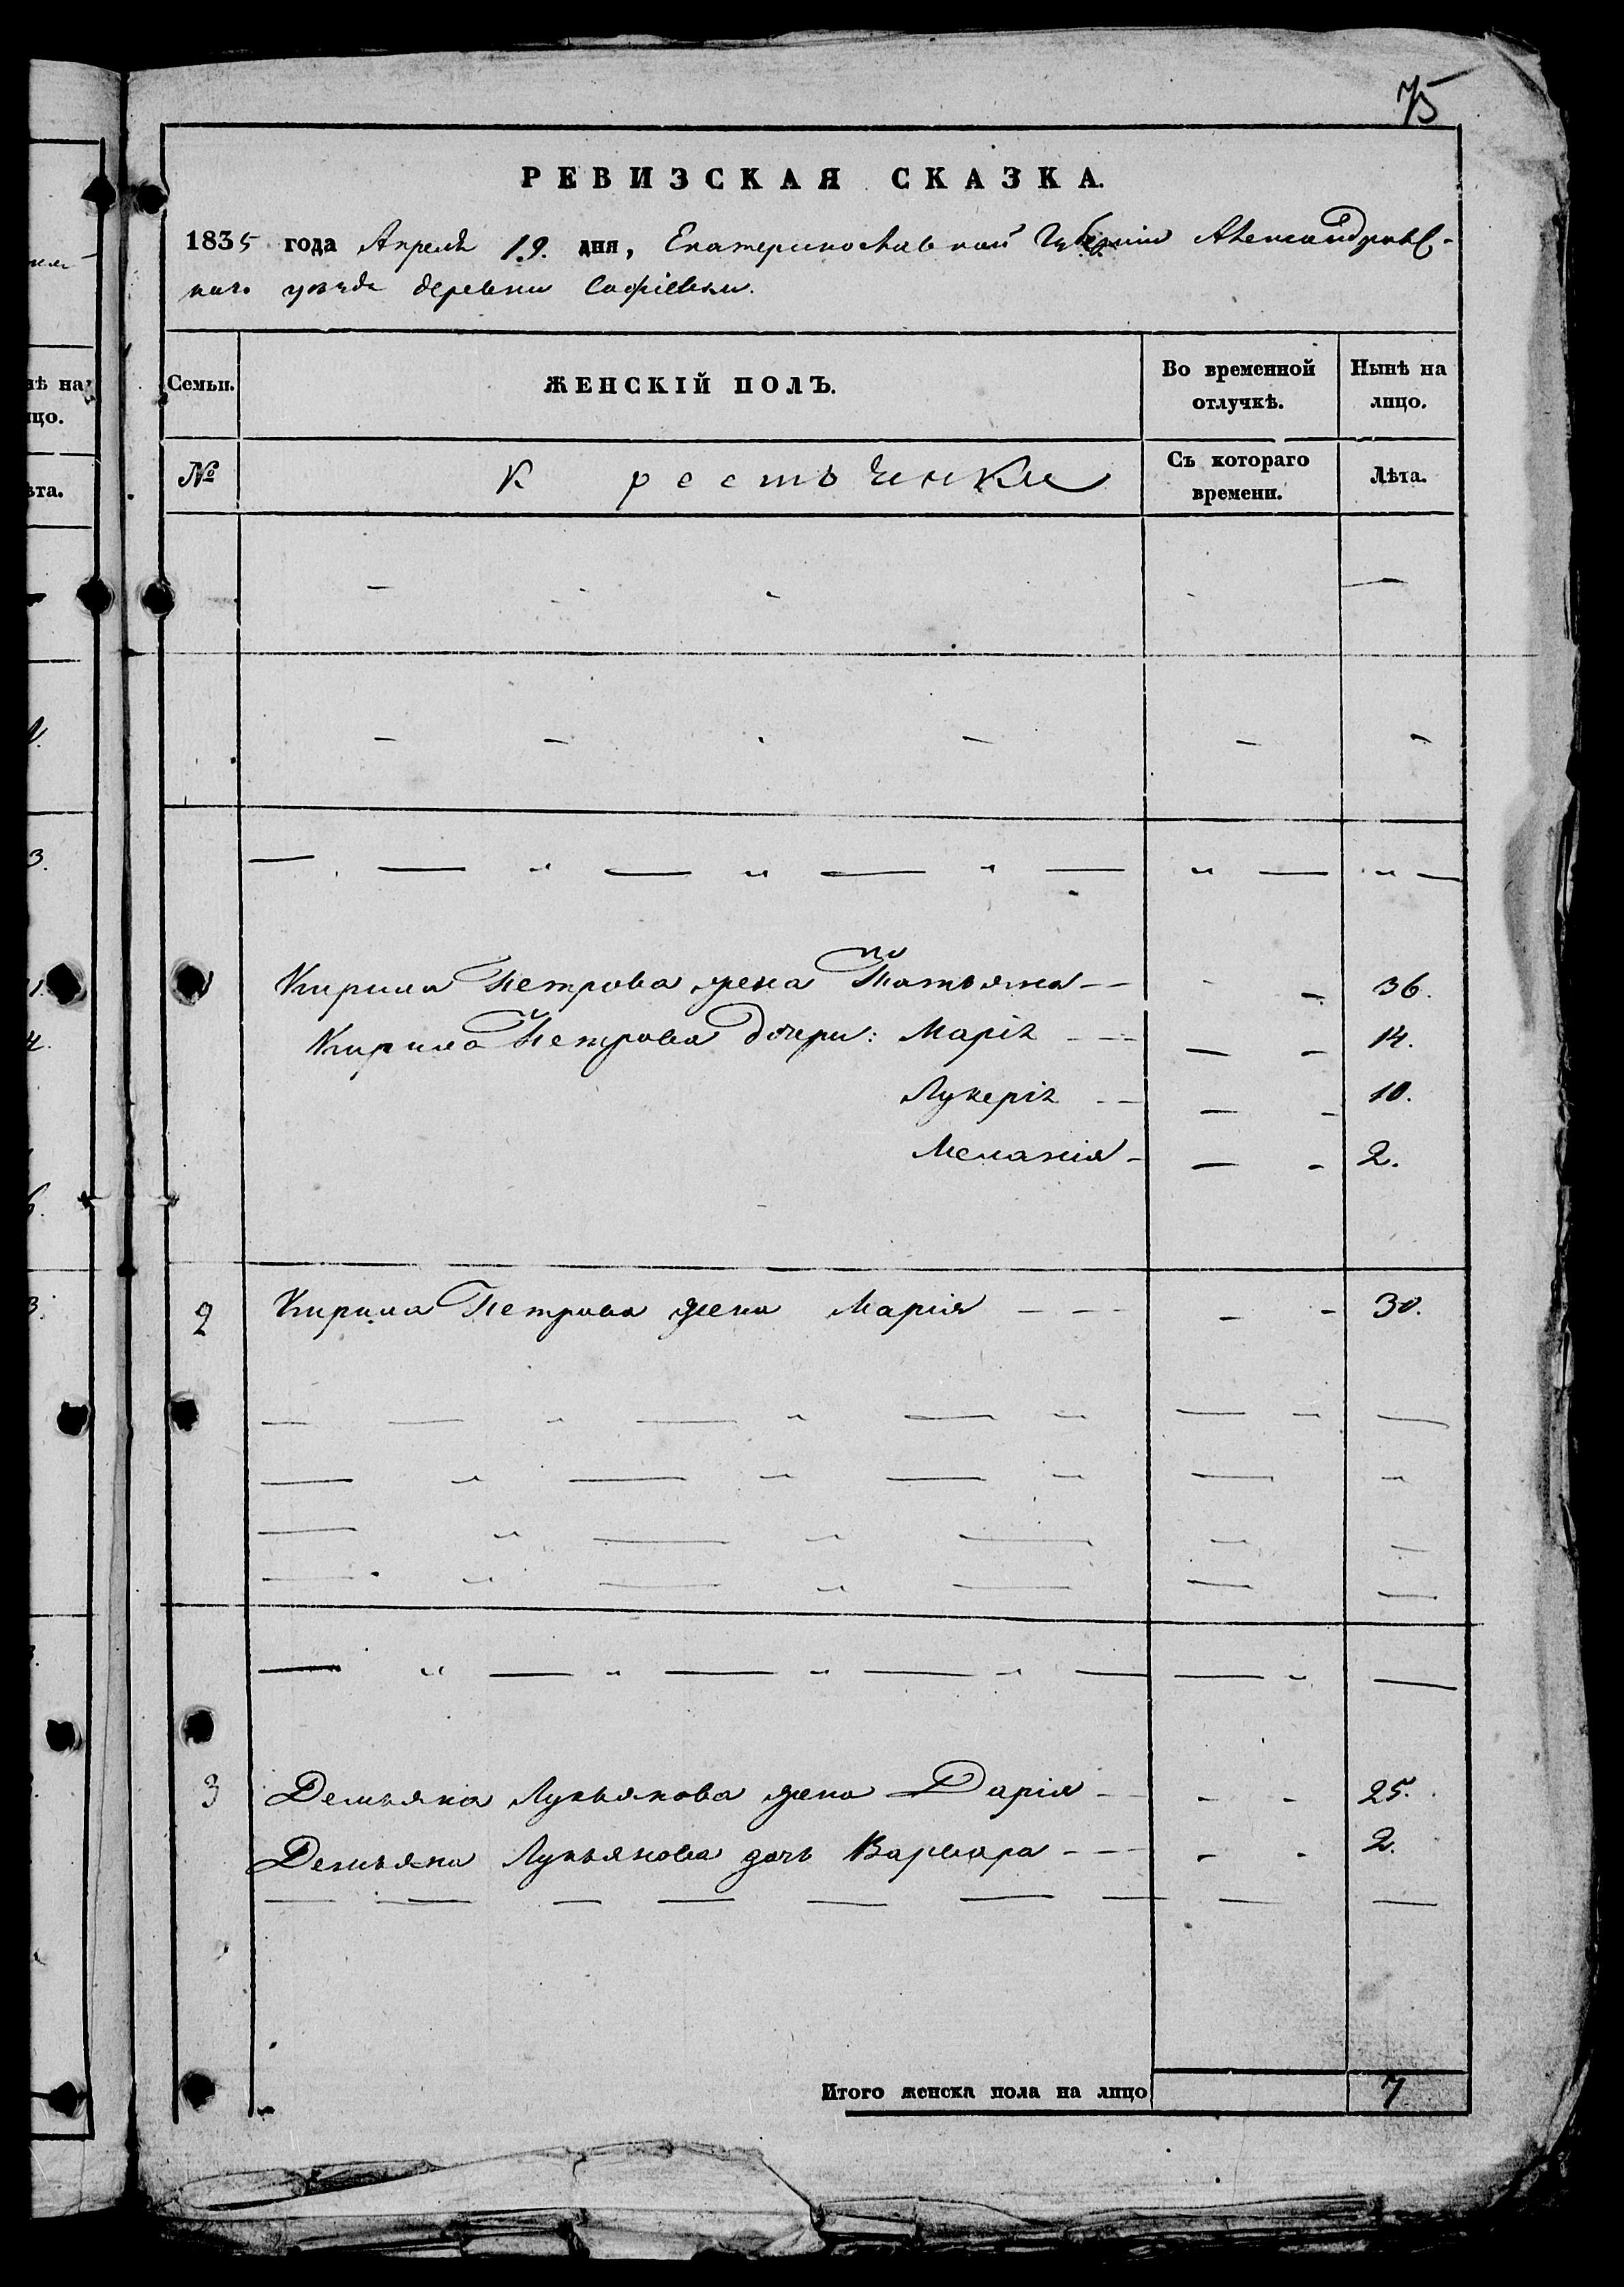 75
РЕВИЗСКАЯ СКАЗКА.
1835 года Апреля 19. дня, Екатеринославской Губерніи Александровс-
каго уезда деревни Софіевки.
Семьи. ЖЕНСКІЙ ПОЛЪ. Во временной отлучкѣ. Нынѣ на лицо.
№ Крестьянки Съ котораго времени. Лѣта.
Кирила Петрова жена Татьяна 36.
Кирила Петрова дочери: Марія 14.
Лукерія 10.
Меланія 2.
2 Кирила Петрова жена Марія 30.
3 Демьяна Лукьянова жена Дарія 25.
Демьяна Лукьянова дочь Варвара 2.
Итого женска пола на лицо 7